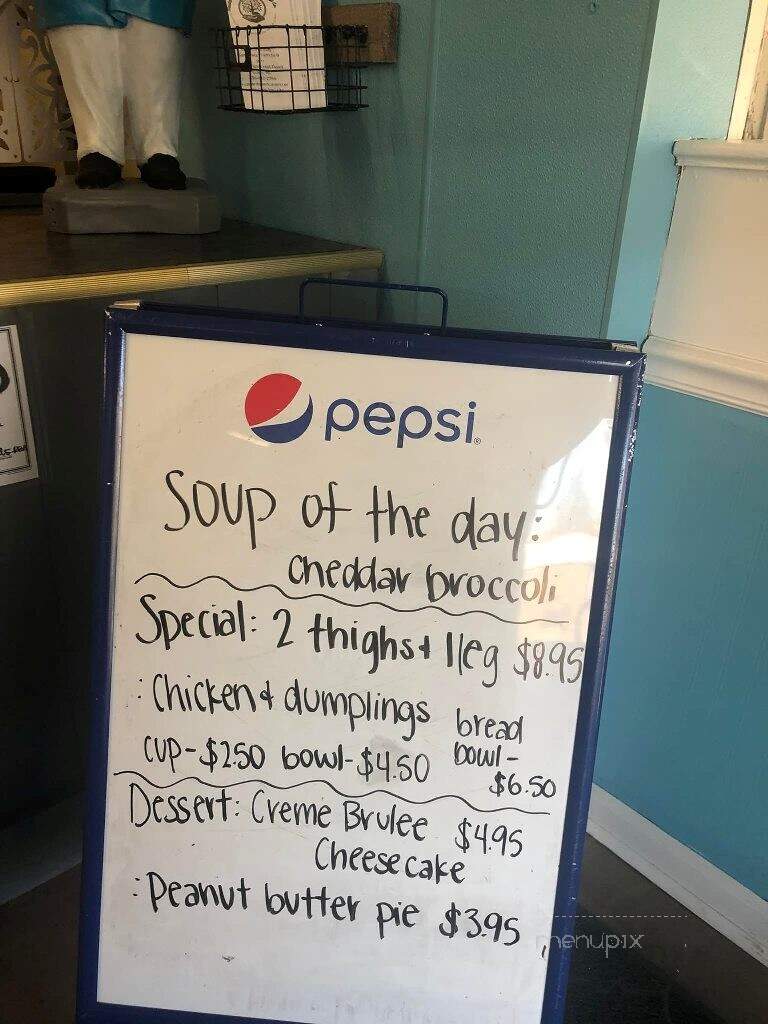 pepsi
Soup of the day:
cheddar broccoli
Special: 2 thighs + 1 leg $8.95
: Chicken & dumplings
cup-$2.50 bowl-$4.50
bread
bowl-
$6.50
Dessert: Creme Brulee $4.95
Cheesecake
: Peanut butter pie $3.95
menupix